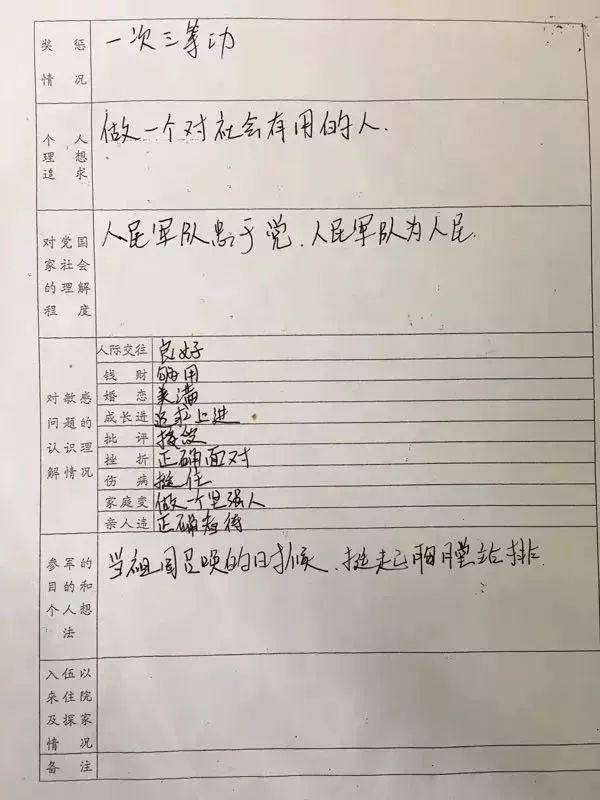 奖惩
情况
一次三等功
个人
理想
追求
做一个对社会有用的人.
对党国
家社会
的理解
程度
人民军队忠于党、人民军队为人民.
对敏感
问题的
认识理
解情况
人际交往 良好
钱财 够用
婚恋 美满
成长进 追求上进
批评 接效
挫折 正确面对
伤病 挺住
家庭变 做一个坚强人
亲人违 正确对待
参军的
目的和
个人想
法
当祖国召唤的时候、挺起胸膛站排.
入伍以
来住院
及探家
情况
备注